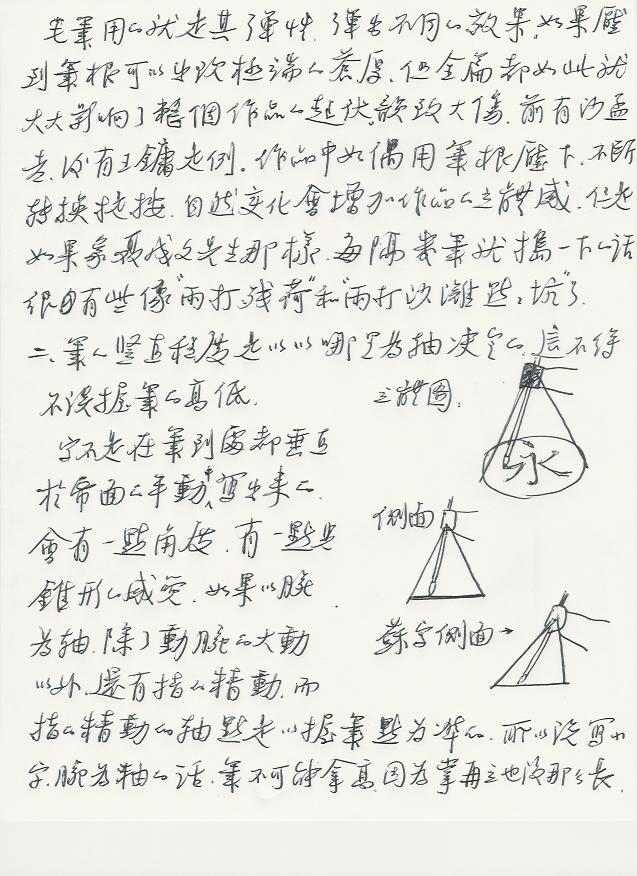 毛筆用的就是其彈性,彈出不同的效果,如果壓
到筆根可以出現極端的蒼厚,但全篇都如此就
大大影响了整個作品的起伏,韻致大傷,前有沙孟
若,後有王鏞是例。作品中如偶用筆根壓下,不斷
轉換提按,自然变化會增加作品的立體感,但是
如果象聶成文先生那樣,每隔幾筆就搗一下的話
很有些像“雨打残荷”和“雨打沙灘點點坑”了。
二、筆的竖直程度是以以哪里為軸决定的,這不等
不误握筆的高低。
立體圖:
永
字不是在筆到處都垂直
於帋面的平動中寫出来的。
側面
會有一點角度,有一點點
錐形的感覺,如果以腕
蘇字側面→
為軸,除了動腕的大動
以外,還有指的精動,而
指的精動的軸點是以握筆點为準的,所以说寫小
字,腕為軸的話,筆不可能拿高,因為掌再立也没那么長。